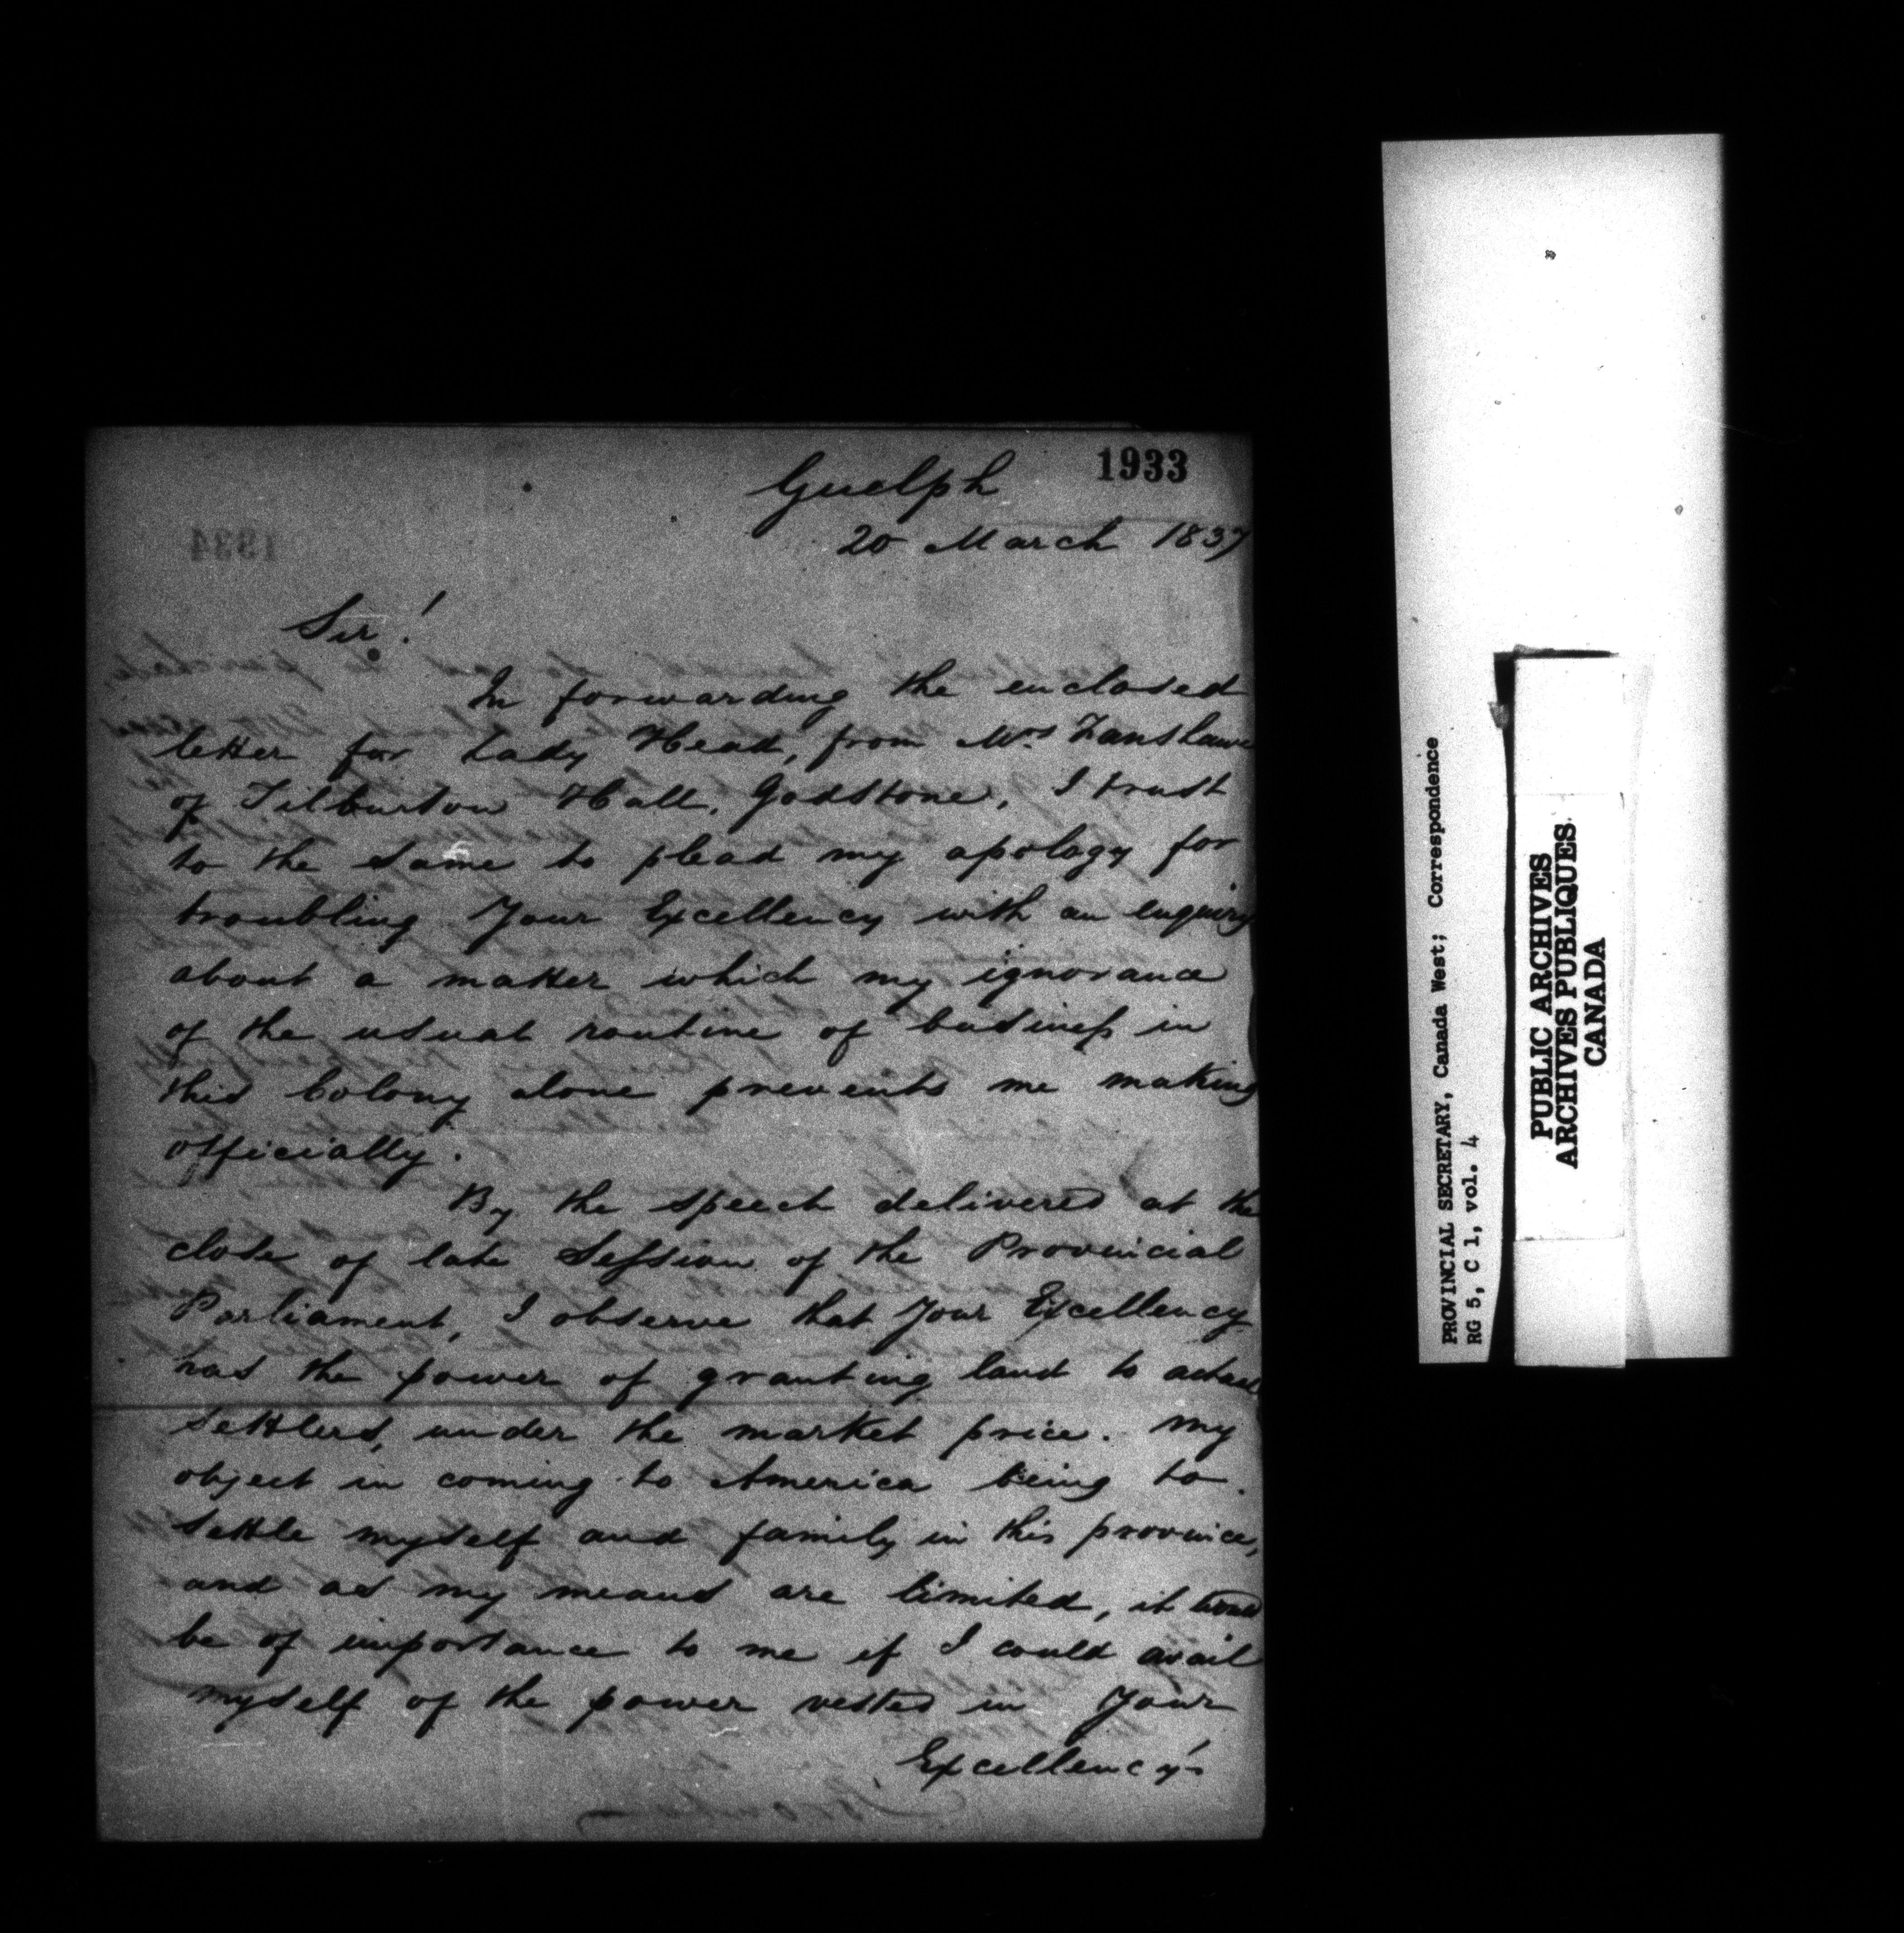 1933
Guelph
20 March 1837
Sir!
In forwarding the enclosed
letter for Lady Head, from Mrs Fanshawe
of Tilburton Hall, Godstone, I trust
to the same to plead my apology for
troubling Your Excellency with an enquiry
about a matter which my ignorance
of the usual routine of business in
this Colony alone prevents me making
officially.
By the speech delivered at the
close of late Session of the Provincial
Parliament, I observe that Your Excellency
has the power of granting land to actual
settlers, under the market price. My
object in coming to America being to
settle myself and family in this province,
and as my means are limited, it would
be of importance to me if I could avail
myself of the power vested in Your
Excellency's
PROVINCIAL SECRETARY, Canada West; Correspondence
RG 5, C 1, vol. 4
PUBLIC ARCHIVES
ARCHIVES PUBLIQUES
CANADA